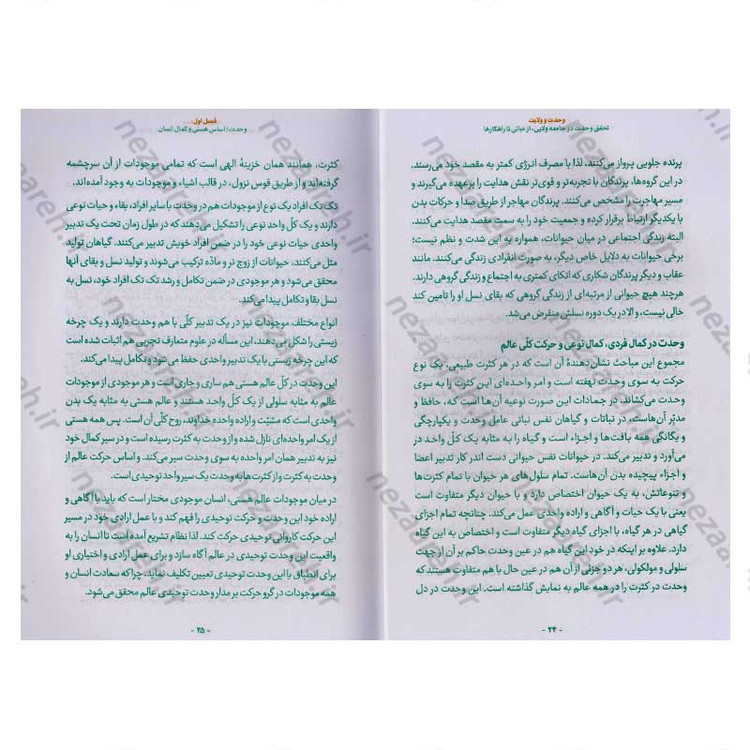 وحدت و ولایت
تحقق وحدت در جامعه ولایی، از مبانی تا راهکارها
پرنده جلویی پرواز می‌کنند، لذا با مصرف انرژی کمتر به مقصد خود می‌رسند.
در این گروه‌ها، پرندگان با تجربه‌تر و قوی‌تر نقش هدایت را برعهده می‌گیرند و
مسیر مهاجرت را مشخص می‌کنند. پرندگان مهاجر از طریق صدا و حرکات بدن
با یکدیگر ارتباط برقرار کرده و جمعیت خود را به سمت مقصد هدایت می‌کنند.
البته زندگی اجتماعی در میان حیوانات، همواره به این شدت و نظم نیست؛
برخی حیوانات به دلایل خاص دیگر، به صورت انفرادی زندگی می‌کنند. مانند
عقاب و دیگر پرندگان شکاری که اتکای کمتری به اجتماع و زندگی گروهی دارند.
هرچند هیچ حیوانی از مرتبه‌ای از زندگی گروهی که بقای نسل او را تامین کند
خالی نیست، و الا در یک دوره نسلش منقرض می‌شد.
وحدت در کمال فردی، کمال نوعی و حرکت کلّی عالم
مجموع این مباحث نشان‌دهندهٔ آن است که در هر کثرت طبیعی، یک نوع
حرکت به سوی وحدت نهفته است و امر واحده‌ای این کثرت را به سوی
وحدت می‌کشاند. در جمادات این صورت نوعیه آن‌ها است که، حافظ و
مدبّر آن‌هاست، در نباتات و گیاهان نفس نباتی عامل وحدت و یکپارچگی
و یگانگی همه بافت‌ها و اجزاء است و گیاه را به مثابه یک کلّ واحد در
می‌آورد و تدبیر می‌کند. در حیوانات نفس حیوانی دست اندر کار تدبیر اعضا
و اجزاء پیچیده بدن آن‌هاست. تمام سلول های هر حیوان با تمام کثرت‌ها
و تنوعاتش، به یک حیوان اختصاص دارد و با حیوان دیگر متفاوت است
یعنی با یک حیات و آگاهی و اراده واحدی عمل می‌کند. چنانچه تمام اجزای
گیاهی در هر گیاه، با اجزای گیاه دیگر متفاوت است و اختصاص به این گیاه
دارد. علاوه بر اینکه در خود این گیاه هم در عین وحدت حاکم بر آن از جهت
سلولی و مولکولی، هر دو جزئی از آن هم در عین حال با هم متفاوت هستند که
وحدت در کثرت را در همه عالم به نمایش گذاشته است. این وحدت در دل
- ۲۴ -
فصل اول:
وحدت؛ اساس هستی و کمال انسان
کثرت، همانند همان خزینهٔ الهی است که تمامی موجودات از آن سرچشمه
گرفته‌اند و از طریق قوس نزول، در قالب اشیاء و موجودات به وجود آمده‌اند.
تک تک افراد یک نوع از موجودات هم در وحدت با سایر افراد، بقاء و حیات نوعی
دارند و یک کلّ واحد نوعی را تشکیل می‌دهند که در طول زمان تحت یک تدبیر
واحدی حیات نوعی خود را در ضمن افراد خویش تدبیر می‌کنند. گیاهان تولید
مثل می‌کنند، حیوانات از زوج نر و مادّه ترکیب می‌شوند و تولید نسل و بقای آنها
محقق می‌شود و هر موجودی در ضمن تکامل و رشد تک تک افراد خود، نسل به
نسل بقا و تکامل پیدا می‌کند.
انواع مختلف موجودات نیز در یک تدبیر کلّی با هم وحدت دارند و یک چرخه
زیستی را شکل می‌دهند، این مسأله در علوم متعارف تجربی هم اثبات شده است
که این چرخه زیستی با یک تدبیر واحدی حفظ می‌شود و تکامل پیدا می‌کند.
این وحدت در کلّ عالم هستی هم ساری و جاری است و هر موجودی از موجودات
عالم به مثابه سلولی از یک کلّ واحد هستند و عالم هستی به مثابه یک بدن
واحدی است که مشیّت و اراده واحده خداوند، روح کلّی آن است. پس همه هستی
از یک امر واحده‌ای نازل شده و از وحدت به کثرت رسیده است و در سیر کمال خود
نیز به تدبیر همان امر واحده به سوی وحدت سیر می‌کند. و اساس حرکت عالم از
وحدت به کثرت و از کثرت‌ها به وحدت یک سیر واحد توحیدی است.
در میان موجودات عالم هستی، انسان موجودی مختار است که باید با آگاهی و
اراده خود این وحدت و حرکت توحیدی را فهم کند و با عمل ارادی خود در مسیر
این حرکت کاروانی توحیدی حرکت کند. لذا نظام تشریع آمده است تا انسان را به
واقعیت این وحدت توحیدی در عالم آگاه سازد و برای عمل ارادی و اختیاری او
برای انطباق با این وحدت توحیدی تعیین تکلیف نماید، چرا که سعادت انسان و
همه موجودات در گرو حرکت بر مدار وحدت توحیدی عالم محقق می‌شود.
- ۲۵ -
nezareh.ir